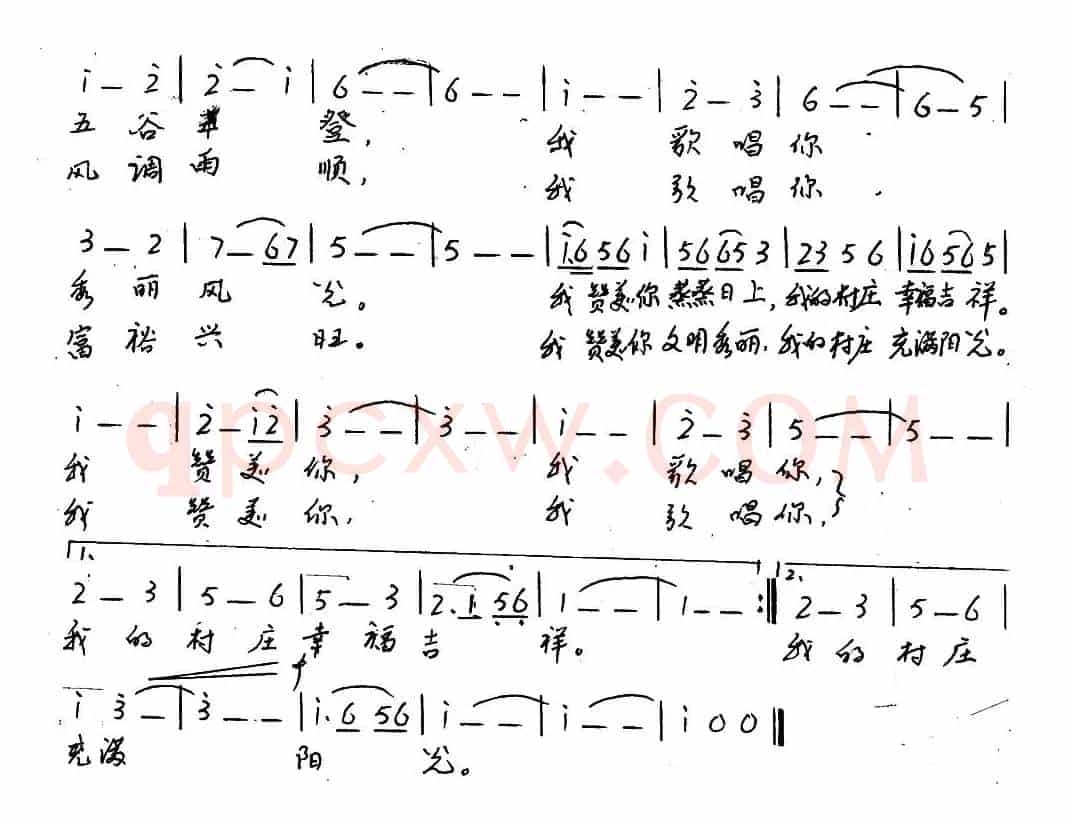 i — 2̇ | 2̇ — i | 6 — — | 6 — — | i — — | 2̇ — 3̇ | 6 — — | 6 — 5 |
五 谷 丰 登, 我 歌 唱 你
风 调 雨 顺, 我 歌 唱 你.
3 — 2 | 7 — 67 | 5 — — | 5 — — | i656i | 56653 | 2356 | i6565 |
秀 丽 风 光。 我赞美你蒸蒸日上,我的村庄幸福吉祥。
富 裕 兴 旺。 我赞美你文明秀丽,我的村庄充满阳光。
i — — | 2̇ — i2̇ | 3̇ — — | 3̇ — — | i — — | 2̇ — 3̇ | 5 — — | 5 — — |
我 赞 美 你, 我 歌 唱 你,
我 赞 美 你, 我 歌 唱 你,
qpcxw.com
1. 2.
2 — 3 | 5 — 6 | 5 — 3 | 2. 1 56 | 1 — — | 1 — — :‖ 2 — 3 | 5 — 6 |
我 的 村 庄 幸 福 吉 祥。 我 的 村 庄
f
i 3̇ — | 3̇ — — | i. 6 56 | i — — | i — — | i 0 0 ‖
充 满 阳 光。